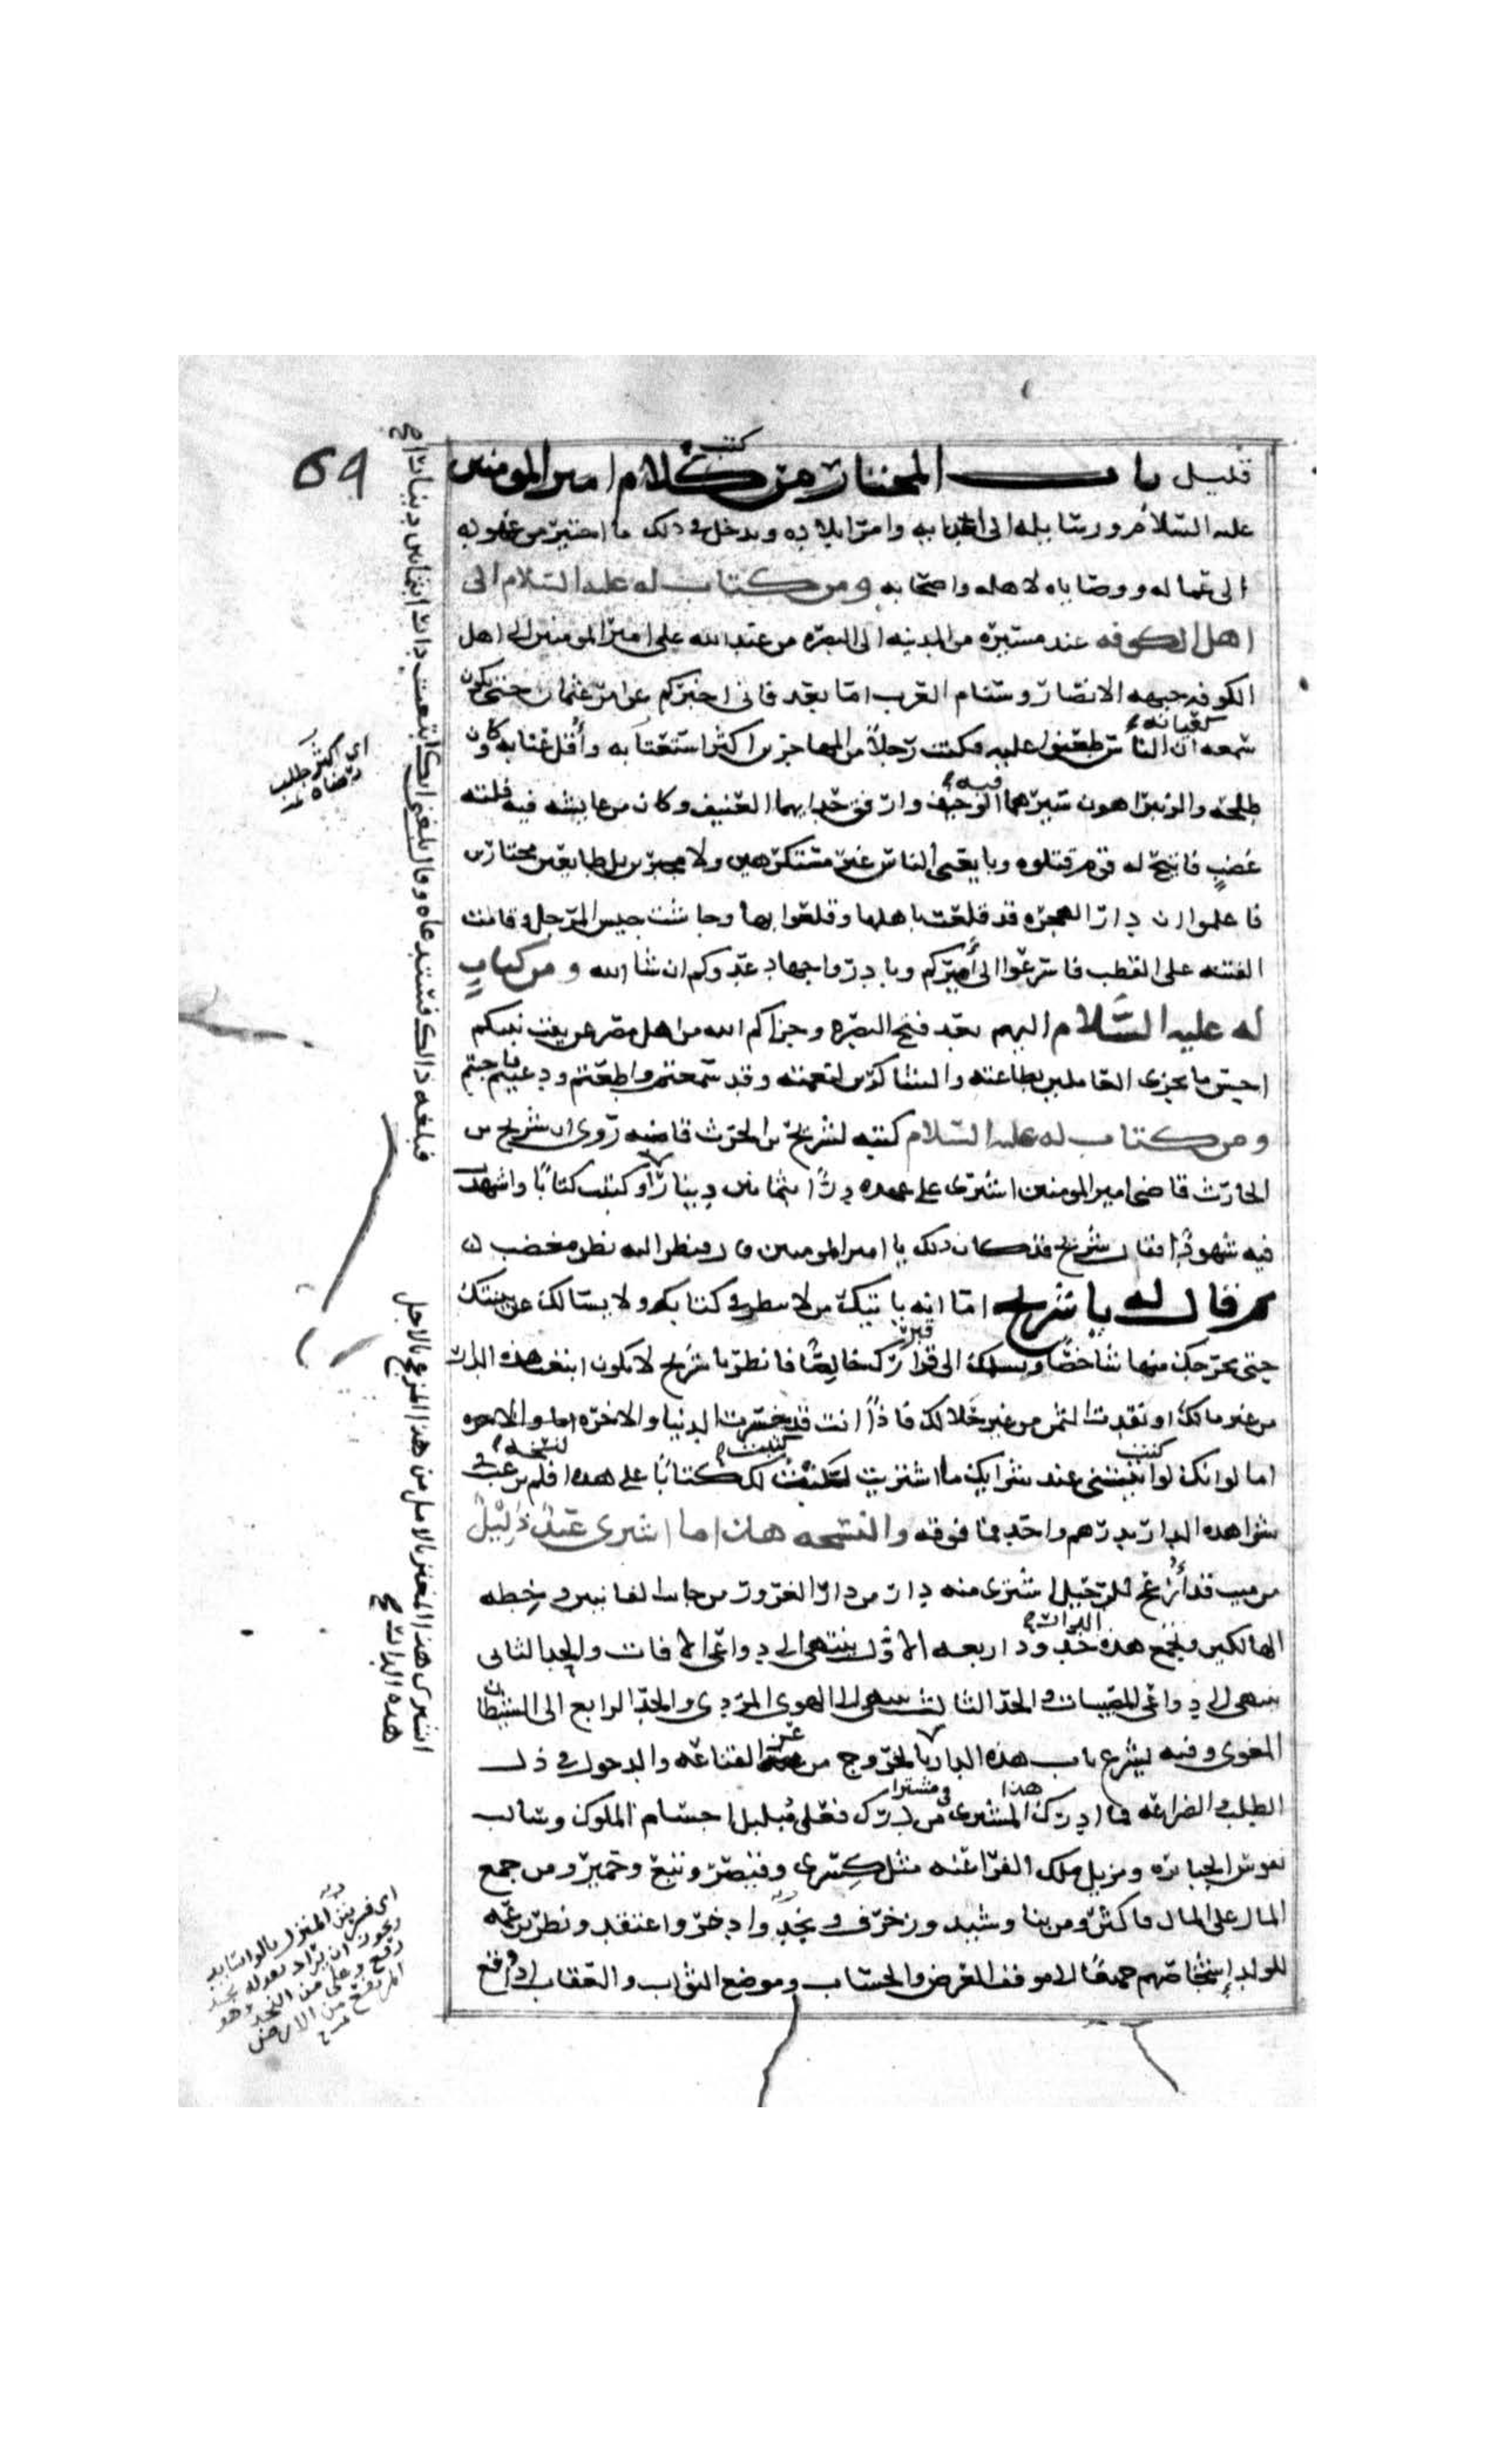 59
قليل باب المختار من كلام امير المومنين
كتب
عليه السلام ورسايله الى اعدايه وامرا بلاده ويدخل في ذلك ما اختير من عهوده
الى عماله ووصاياه لاهله واصحابه ومن كتاب له عليه السلام الى
اهل الكوفه عند مسيره من المدينه الى البصره من عبد الله على امير المومنين الى اهل
الكوفه جبهه الانصار وسنام العرب اما بعد فانى اخبركم عن امر عثمان حتى يكون
سمعه كعيانه ان الناس طعنوا عليه فكنت رجلا من المهاجرين اكثر استعتابه واقل عتابه وكان
طلحه والزبير اهون سيرهما فيه الوجيف وارفق حدايهما العنيف وكان من عايشه فيه فلته
غضب فاتيح له قوم قتلوه وبايعنى الناس غير مستكرهين ولا مجبرين بل طايعين مختارين
فاعلموا ان دار الهجره قد قلعت باهلها وقلعوا بها وجاشت جيش المرجل وقامت
الفتنه على القطب فاسرعوا الى اميركم وبادروا جهاد عدوكم ان شا الله ومن كتاب
له عليه السلام اليهم بعد فتح البصره وجزاكم الله من اهل مصر عن بيت نبيكم
احسن ما يجزى العاملين بطاعته والشاكرين لنعمته وقد سمعتم واطعتم ودعيتم فاجبتم
ومن كتاب له عليه السلام كتبه لشريح بن الحرث قاضيه روى ان شريح بن
الحارث قاضى امير المومنين اشترى على عهده دارا بثمانين دينارا وكتب كتابا واشهد
فيه شهودا فقال شريح قد كان ذلك يا امير المومنين قال فنظر اليه نظر مغضب
ثم قال له يا شريح اما انه ياتيك من لا ينظر في كتابك ولا يسالك عن بينتك
حتى يخرجك منها شاخصا ويسلمك الى قبرك خالصا فانظر يا شريح لا تكون ابتعت هذه الدار
من غير مالك او نقدت الثمن من غير حلالك فاذا انت قد خسرت الدنيا والاخره
اما لو انك لو اتيتنى عند شرايك ما اشتريت لكتبت لك كتابا على هذه النسخه فلم ترغب في
شرا هذه الدار بدرهم واحد فما فوقه والنسخه هذا ما اشترى عبد ذليل
من ميت قد ازعج للرحيل اشترى منه دار من دار الغرور من جانب الفانين وخطه
الهالكين وتجمع هذه الدار حدود اربعه الاول ينتهى الى دواعى الافات والحد الثانى
ينتهى الى دواعى المصيبات والحد الثالث ينتهى الى الهوى المردى والحد الرابع الى الشيطان
المغوى وفيه يشرع باب هذه الدار بالخروج من عز القناعه والدخول في ذل
الطلب والضراعه فما ادرك هذا المشترى من درك فعلى مبلبل اجسام الملوك وسالب
نفوس الجبابره ومزيل ملك الفراعنه مثل كسرى وقيصر وتبع وحمير ومن جمع
المال على المال فاكثر ومن بنا وشيد وزخرف ونجد وادخر واعتقد ونظر بزعمه
للولد اشخاصهم جميعا الا موقف العرض والحساب وموضع الثواب والعقاب اذا وقع
فبلغه ذالك فاستدعاه وقال بلغنى انك ابتعت دارا بثمانين دينارا
اى اكثر طلب
رضاه عنه
اشترى هذا المغتر بالامل من هذا المزعج بالاجل
هذه الدار